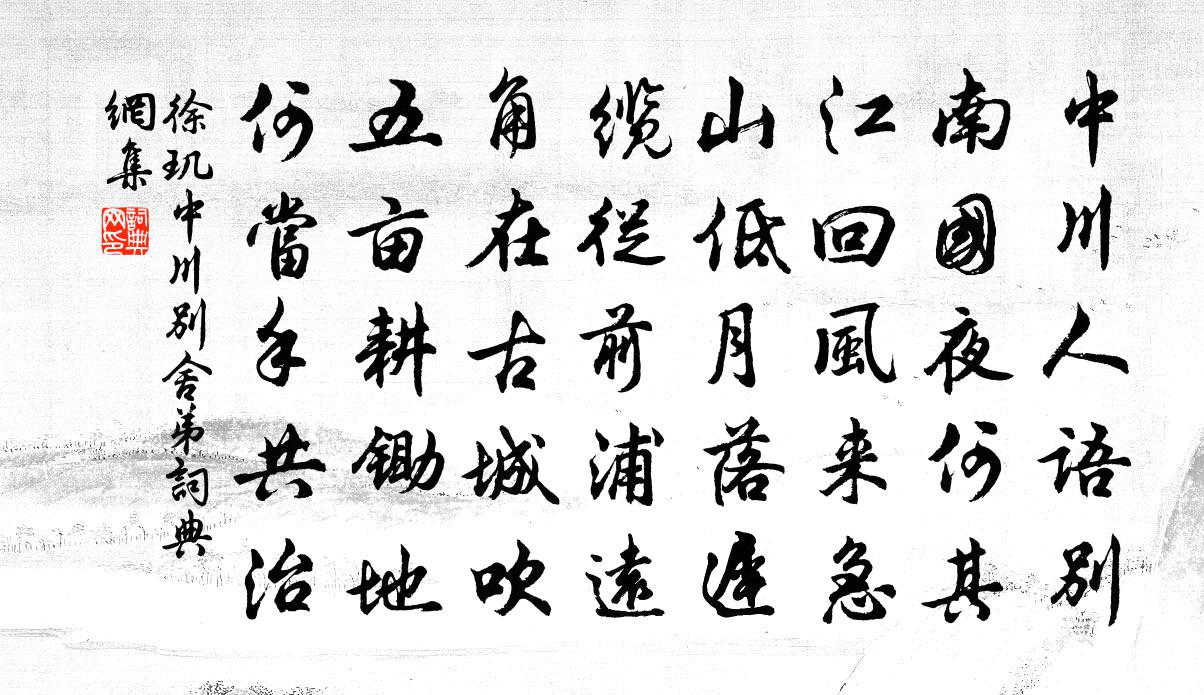 中川人語别
南國夜何其
江回風来急
山低月落遲
纜從前浦遠
角在古城吹
五亩耕鋤地
何當手共治
徐玑中川别舍弟詞典
網集
詞典网印